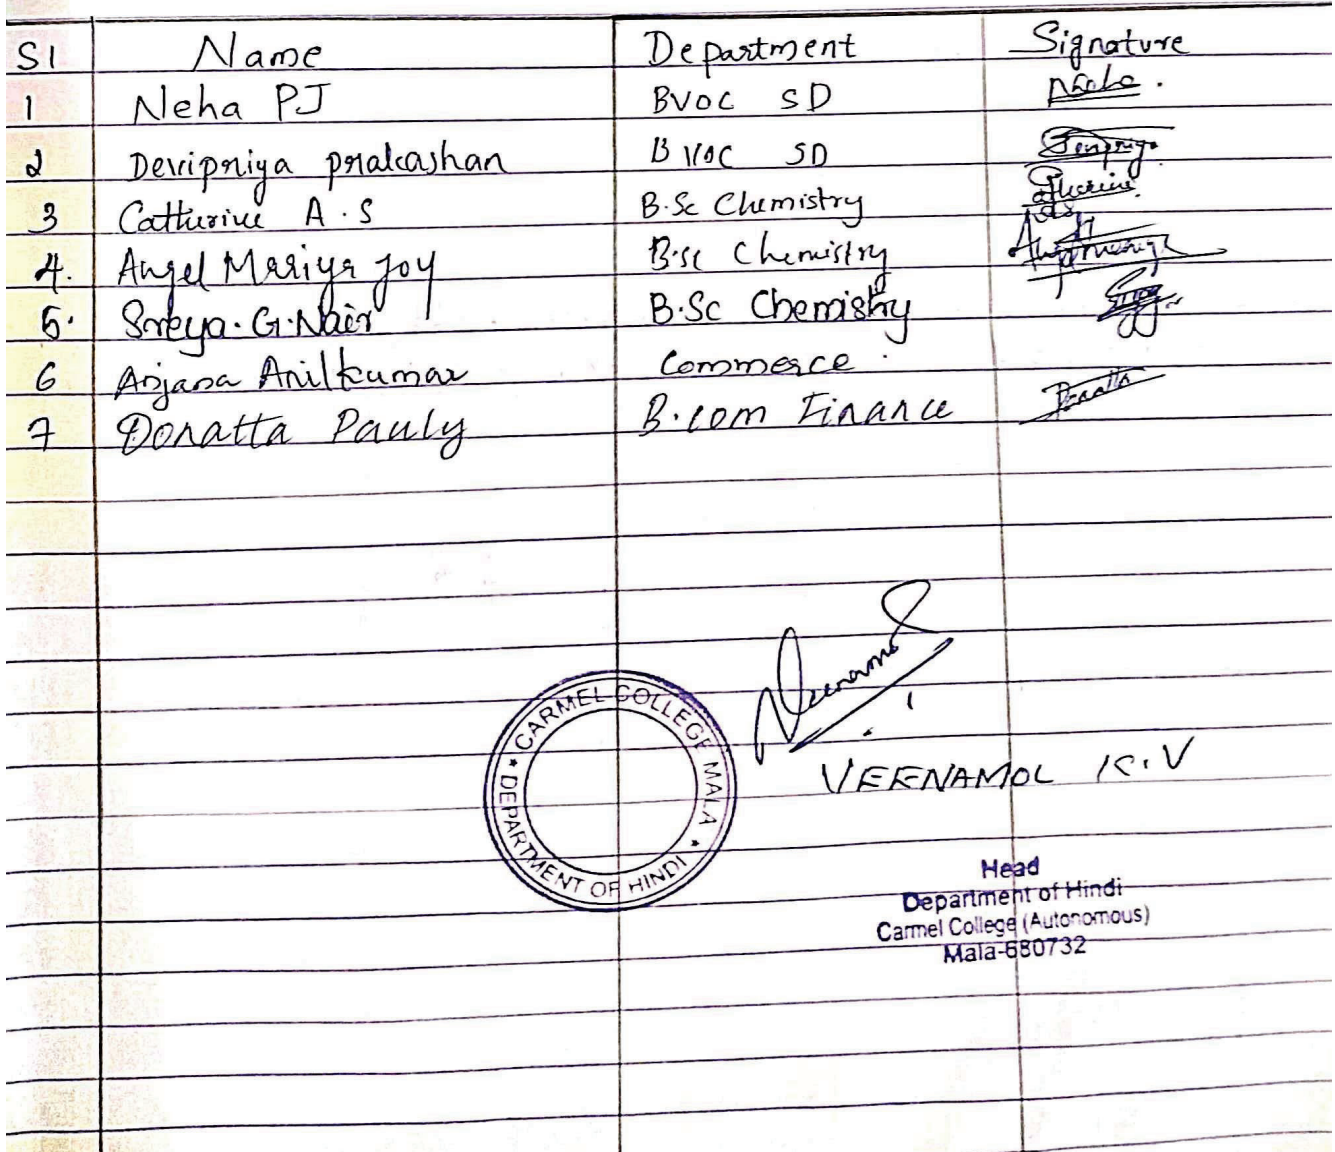 Sl Name Department Signature
1 Neha PJ BVOC SD Neha.
2 Devipriya prakashan BVOC SD
3 Catherine A.S B.Sc Chemistry Catherine
4. Angel Mariya Joy B.Sc Chemistry
5. Sreya.G.Nair B.Sc Chemistry
6 Anjana Anilkumar Commerce.
7 Donatta Pauly B.com Finance Donatta
Veenamol
VEENAMOL K.V
CARMEL COLLEGE MALA * DEPARTMENT OF HINDI *
Head
Department of Hindi
Carmel College (Autonomous)
Mala-680732